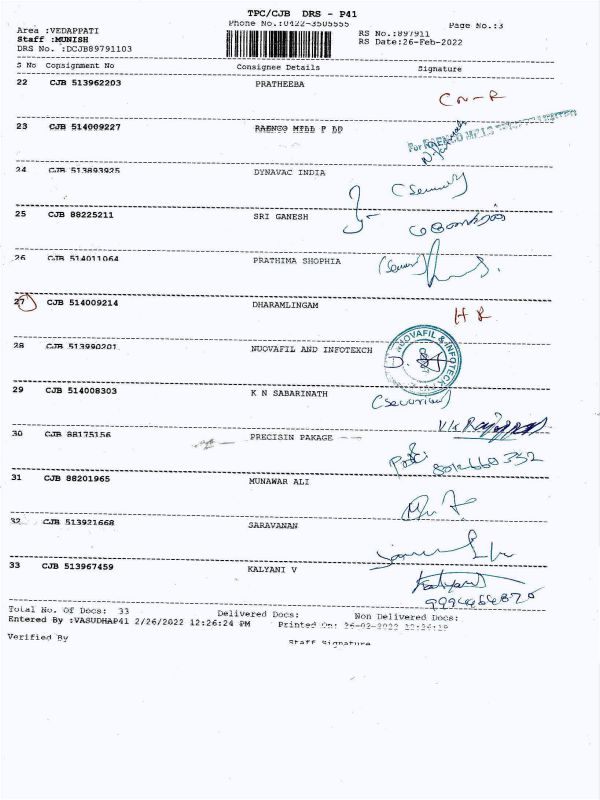 TPC/CJB DRS - P41
Phone No.:0422-3505555
Page No.:3
Area :VEDAPPATI
Staff :MUNISH
DRS No. :DCJB89791103
RS No.:897911
RS Date:26-Feb-2022
S No Consignment No Consignee Details Signature
22 CJB 513962203 PRATHEEBA
CN-R
23 CJB 514009227 RAENCO MTLL P DD
For RAENCO
24 CJB 513893925 DYNAVAC INDIA
25 CJB 88225211 SRI GANESH
26 CJB 514011064 PRATHIMA SHOPHIA
27 CJB 514009214 DHARAMLINGAM
H R
28 CJB 513990201 NUOVAFIL AND INFOTEXCH
NUOVAFIL & INFOTECK
29 CJB 514008303 K N SABARINATH
(Security)
30 CJB 88175156 PRECISIN PAKAGE
31 CJB 88201965 MUNAWAR ALI
32 CJB 513921668 SARAVANAN
33 CJB 513967459 KALYANI V
Kalyani
Total No. Of Docs: 33 Delivered Docs: Non Delivered Docs:
Entered By :VASUDHAP41 2/26/2022 12:26:24 PM Printed On: 26-02-2022 12:26:19
Verified By Staff Signature